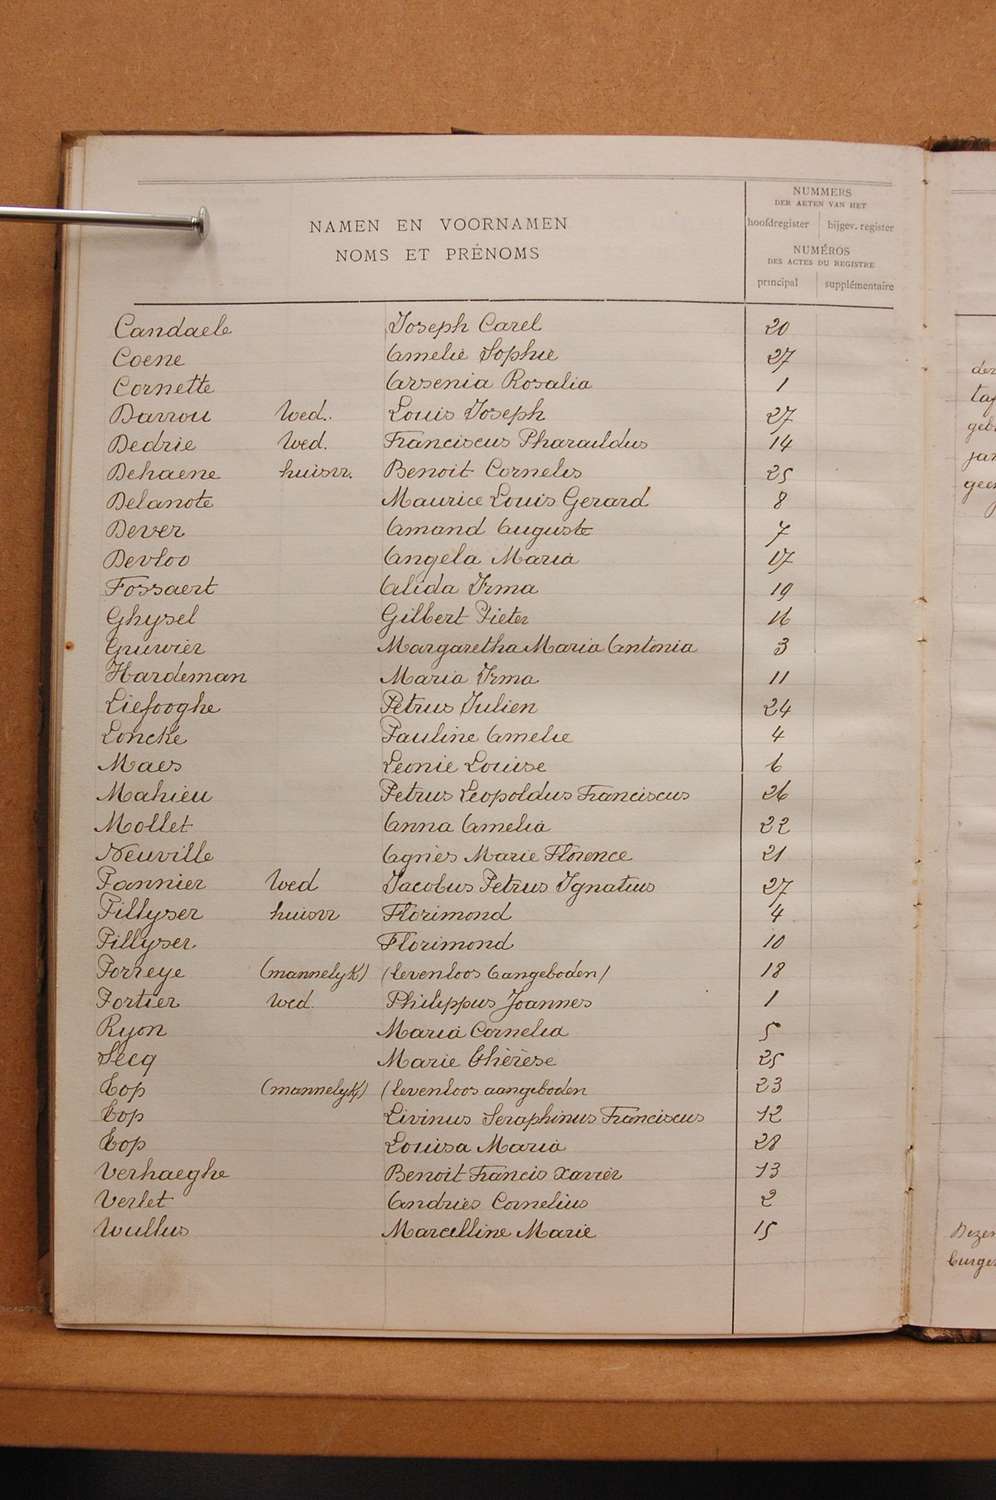 NUMMERS
DER AKTEN VAN HET
hoofdregister bijgev. register
NAMEN EN VOORNAMEN
NOMS ET PRÉNOMS
NUMÉROS
DES ACTES DU REGISTRE
principal supplémentaire
Candaele Joseph Carel 20
Coene Amelie Sophie 27
Cornette Arsenia Rosalia 1
Darrou Wed. Louis Joseph 27
Dedrie Wed. Franciscus Pharaildus 14
Dehaene huisvr. Benoit Cornelis 25
Delanote Maurice Louis Gerard 8
Dever Amand Auguste 7
Devloo Angela Maria 17
Fossaert Alida Irma 19
Ghysel Gilbert Pieter 16
Gruwier Margaretha Maria Antonia 3
Hardeman Maria Irma 11
Liefooghe Petrus Julien 24
Loncke Pauline Amelie 4
Maes Leonie Louise 6
Mahieu Petrus Leopoldus Franciscus 26
Mollet Anna Amelia 22
Neuville Agnès Marie Florence 21
Pannier Wed Jacobus Petrus Ignatius 27
Pillyser huisvr Florimond 4
Pillyser Florimond 10
Porreye (mannelyk) (levenloos Aangeboden) 18
Portier wed. Philippus Joannes 1
Ryon Maria Cornelia 5
Secq Marie Thérèse 25
Top (mannelyk) (levenloos aangeboden 23
Top Livinus Seraphinus Franciscus 12
Top Louisa Maria 28
Verhaeghe Benoit Francis Xavier 13
Verlet Andries Cornelius 2
Wullus Marcelline Marie 15